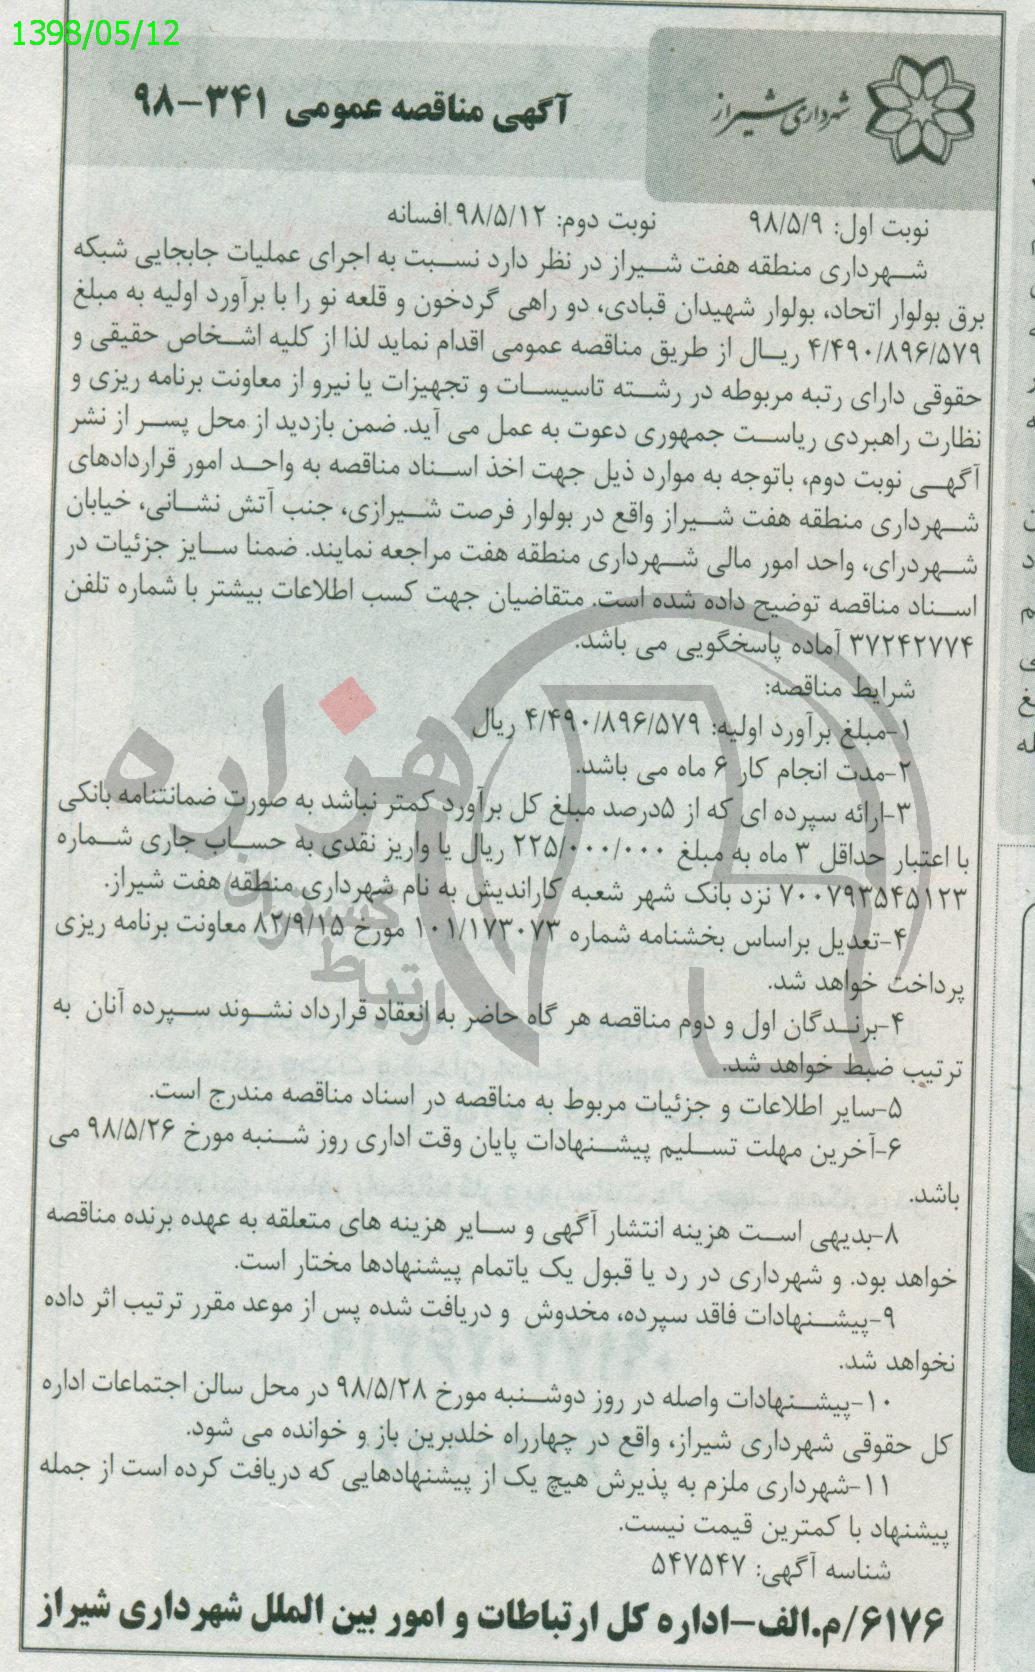 1398/05/12
شهرداری شیراز
آگهی مناقصه عمومی ۳۴۱-۹۸
نوبت اول: ۹۸/۵/۹ نوبت دوم: ۹۸/۵/۱۲ افسانه
شهرداری منطقه هفت شیراز در نظر دارد نسبت به اجرای عملیات جابجایی شبکه
برق بولوار اتحاد، بولوار شهیدان قبادی، دو راهی گردخون و قلعه نو را با برآورد اولیه به مبلغ
۴/۴۹۰/۸۹۶/۵۷۹ ریال از طریق مناقصه عمومی اقدام نماید لذا از کلیه اشخاص حقیقی و
حقوقی دارای رتبه مربوطه در رشته تاسیسات و تجهیزات یا نیرو از معاونت برنامه ریزی و
نظارت راهبردی ریاست جمهوری دعوت به عمل می آید. ضمن بازدید از محل پسر از نشر
آگهی نوبت دوم، باتوجه به موارد ذیل جهت اخذ اسناد مناقصه به واحد امور قراردادهای
شهرداری منطقه هفت شیراز واقع در بولوار فرصت شیرازی، جنب آتش نشانی، خیابان
شهردرای، واحد امور مالی شهرداری منطقه هفت مراجعه نمایند. ضمنا سایز جزئیات در
اسناد مناقصه توضیح داده شده است. متقاضیان جهت کسب اطلاعات بیشتر با شماره تلفن
۳۷۲۴۲۷۷۴ آماده پاسخگویی می باشد.
شرایط مناقصه:
۱-مبلغ برآورد اولیه: ۴/۴۹۰/۸۹۶/۵۷۹ ریال
۲-مدت انجام کار ۶ ماه می باشد.
۳-ارائه سپرده ای که از ۵درصد مبلغ کل برآورد کمتر نباشد به صورت ضمانتنامه بانکی
با اعتبار حداقل ۳ ماه به مبلغ ۲۲۵/۰۰۰/۰۰۰ ریال یا واریز نقدی به حساب جاری شماره
۷۰۰۷۹۳۵۴۵۱۲۳ نزد بانک شهر شعبه کاراندیش به نام شهرداری منطقه هفت شیراز.
۴-تعدیل براساس بخشنامه شماره ۱۰۱/۱۷۳۰۷۳ مورخ ۸۲/۹/۱۵ معاونت برنامه ریزی
پرداخت خواهد شد.
۴-برندگان اول و دوم مناقصه هر گاه حاضر به انعقاد قرارداد نشوند سپرده آنان به
ترتیب ضبط خواهد شد.
۵-سایر اطلاعات و جزئیات مربوط به مناقصه در اسناد مناقصه مندرج است.
۶-آخرین مهلت تسلیم پیشنهادات پایان وقت اداری روز شنبه مورخ ۹۸/۵/۲۶ می
باشد.
۸-بدیهی است هزینه انتشار آگهی و سایر هزینه های متعلقه به عهده برنده مناقصه
خواهد بود. و شهرداری در رد یا قبول یک یاتمام پیشنهادها مختار است.
۹-پیشنهادات فاقد سپرده، مخدوش و دریافت شده پس از موعد مقرر ترتیب اثر داده
نخواهد شد.
۱۰-پیشنهادات واصله در روز دوشنبه مورخ ۹۸/۵/۲۸ در محل سالن اجتماعات اداره
کل حقوقی شهرداری شیراز، واقع در چهارراه خلدبرین باز و خوانده می شود.
۱۱-شهرداری ملزم به پذیرش هیچ یک از پیشنهادهایی که دریافت کرده است از جمله
پیشنهاد با کمترین قیمت نیست.
شناسه آگهی: ۵۴۷۵۴۷
۶۱۷۶/م.الف-اداره کل ارتباطات و امور بین الملل شهرداری شیراز
هزاره
گستران
ارتباط